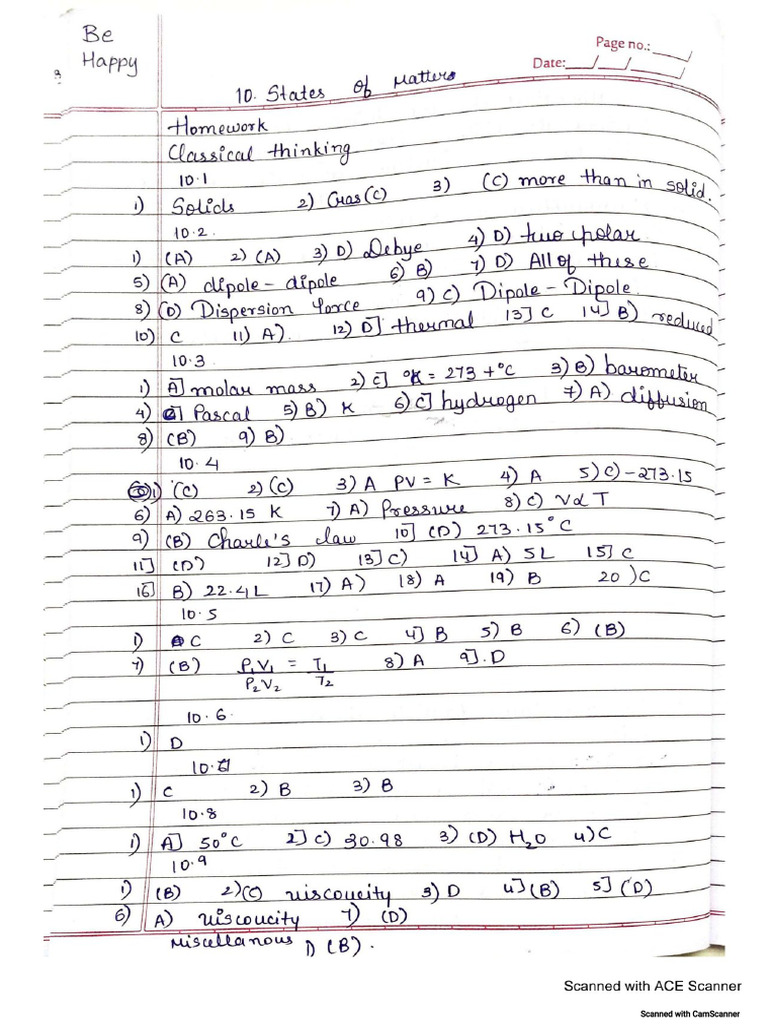 Be
Happy
Page no.: ___/
Date: __/__/__/
10. States of Matters
Homework
Classical thinking
10.1
1) Solids 2) Gas (C) 3) (C) more than in solid.
10.2.
1) (A) 2) (A) 3) D) Debye 4) D) two polar
5) (A) dipole - dipole 6) B) 7) D) All of these
8) (D) Dispersion force 9) C) Dipole - Dipole
10) C 11) A). 12) D] thermal 13] C 14] B) reduced
10.3
1) A] molar mass 2) C] °K = 273 + °C 3) B) barometer
4) C] Pascal 5) B) K 6) C] hydrogen 7) A) diffusion
8) (B) 9) B)
10.4
1) (C) 2) (C) 3) A PV = K 4) A 5) C) -273.15
6) A) 263.15 K 7) A) Pressure 8) C) V∝T
9) (B) Charle's law 10] (D) 273.15°C
11] (D) 12] D) 13] C) 14] A) 5L 15] C
16] B) 22.4L 17) A) 18) A 19) B 20) C
10.5
1) C 2) C 3) C 4] B 5) B 6) (B)
7) (B) P₁V₁/P₂V₂ = T₁/T₂ 8) A 9]. D
10.6.
1) D
10.7
1) C 2) B 3) B
10.8
1) A] 50°C 2] C) 30.98 3) (D) H₂O 4) C
10.9
1) (B) 2) (C) viscoucity 3) D 4] (B) 5] (D)
6) A) viscoucity 7) (D)
Miscellanous 1) (B).
Scanned with ACE Scanner
Scanned with CamScanner